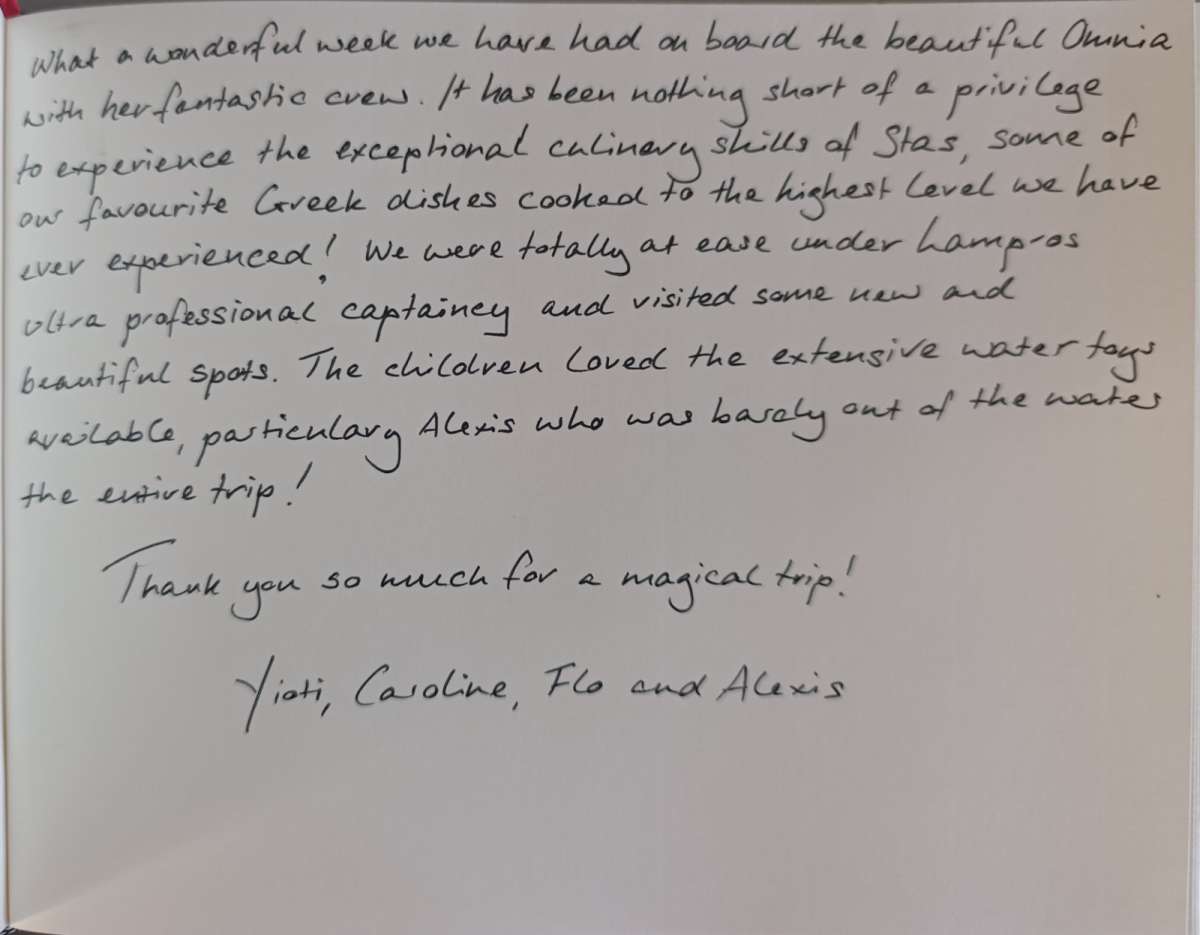 What a wonderful week we have had on board the beautiful Omnia
with her fantastic crew. It has been nothing short of a privilege
to experience the exceptional culinary skills of Stas, some of
our favourite Greek dishes cooked to the highest level we have
ever experienced! We were totally at ease under Lampros
ultra professional captainey and visited some new and
beautiful spots. The children loved the extensive water toys
available, particulary Alexis who was barely out of the water
the entire trip!
Thank you so much for a magical trip!
Yioti, Caroline, Flo and Alexis